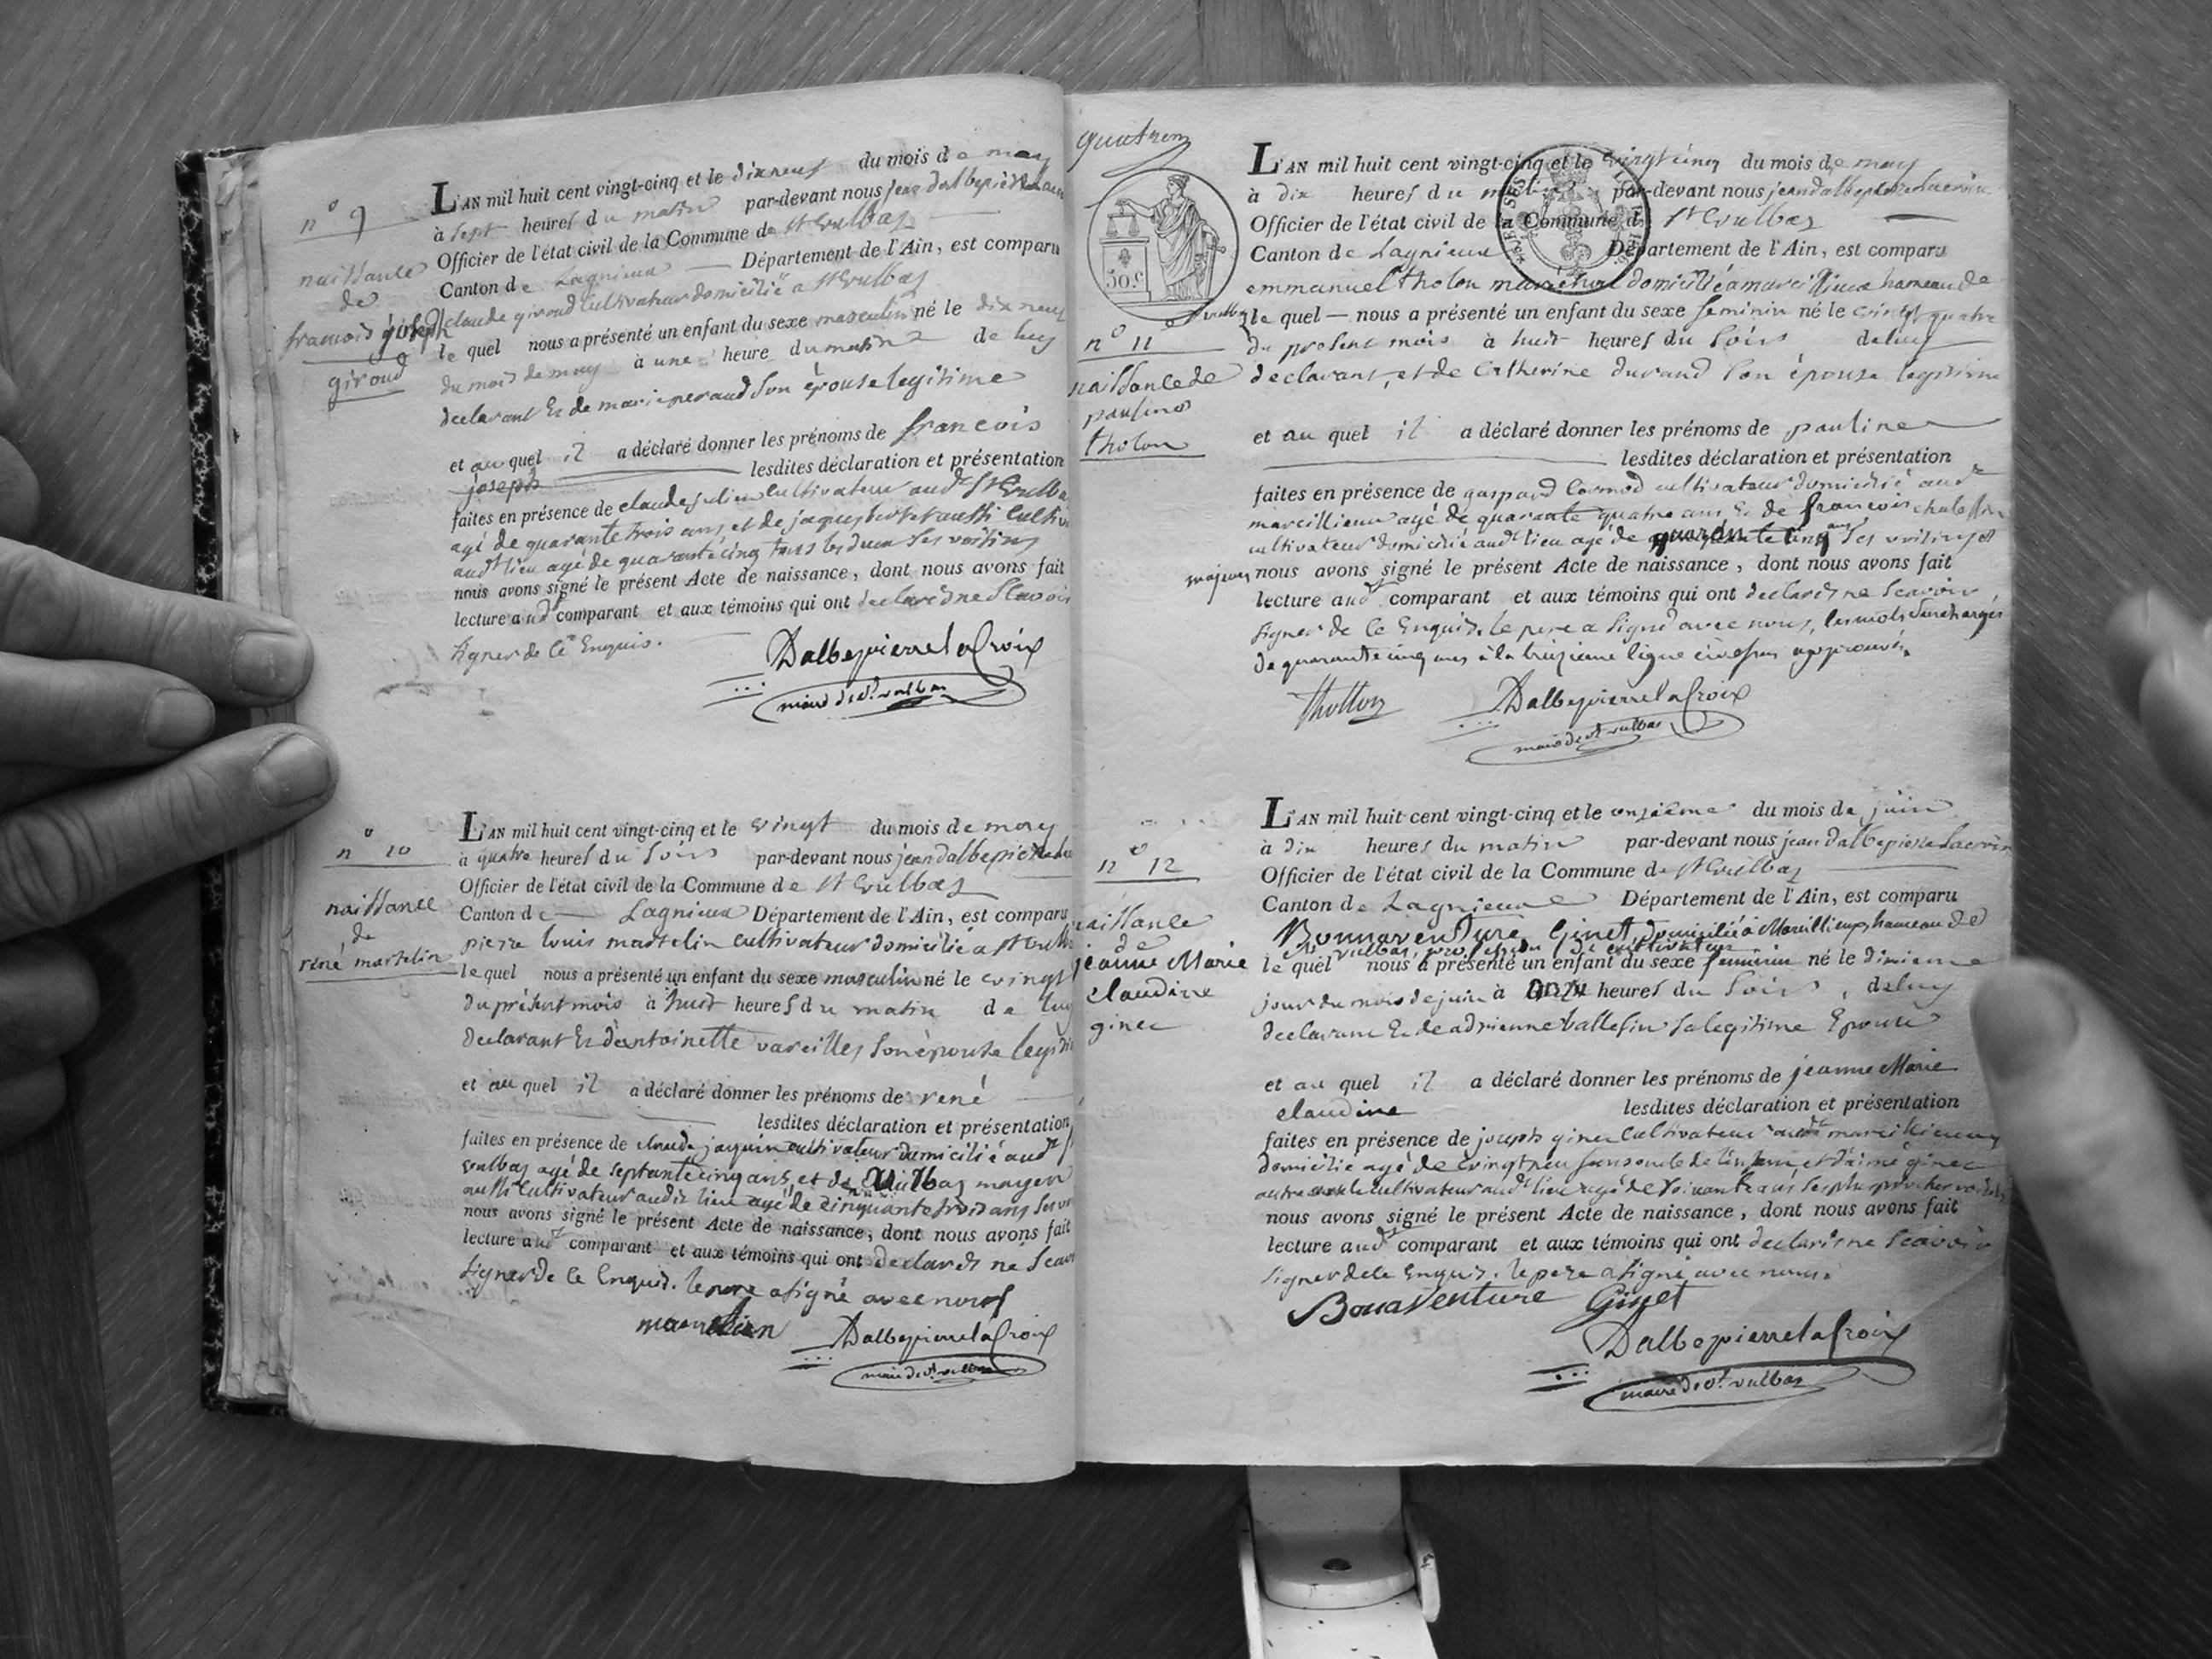 n° 9
naissance
de
francois joseph
giroud
L'AN mil huit cent vingt-cinq et le dixneuf du mois de may
à sept heures du matin par-devant nous jean dalbepierre
Officier de l'état civil de la Commune de St Vulbas
Canton de Lagnieux Département de l'Ain, est comparu
claude giroud Cultivateur domicilié a St Vulbas
le quel nous a présenté un enfant du sexe masculin né le dix neuf
du mois de may à une heure du matin de luy
declarant Et de marie peraud Son épouse legitime
et au quel il a déclaré donner les prénoms de francois
joseph lesdites déclaration et présentation
faites en présence de claude julien Cultivateur audt St Vulba
agé de quarante trois ans et de jaques aussi Cultiv
audt lieu agé de quarante cinq tous les deux Ses voisins
nous avons signé le présent Acte de naissance, dont nous avons fait
lecture audt comparant et aux témoins qui ont declarés ne Scavoir
Signer de Ce Enquis.
Dalbepierre la Croix
maire de St vulbas
n° 10
naissance
de
réné martelin
L'AN mil huit cent vingt-cinq et le vingt du mois de may
à quatre heures du Soir par-devant nous jean dalbepierre
Officier de l'état civil de la Commune de St Vulbas
Canton de Lagnieux Département de l'Ain, est comparu
pierre louis martelin Cultivateur domicilié a St Vulb
le quel nous a présenté un enfant du sexe masculin né le vingt
du présent mois à huit heures du matin de luy
declarant Et d'antoinette vareilles Son épouse legiti
et au quel il a déclaré donner les prénoms de réné
lesdites déclaration et présentation
faites en présence de claude jaquin cultivateur domicilié audt St
Vulbas agé de septante cinq ans, et de Vulbas moyen
aussi Cultivateur audit lieu agé de cinquante trois ans
nous avons signé le présent Acte de naissance, dont nous avons fait
lecture audt comparant et aux témoins qui ont declarés ne Scav
Signer de Ce Enquis. le pere a signé avec nous
Dalbepierre la Croix
maire de St vulbas
50.c
n° 11
naissance de
pauline
tholon
L'AN mil huit cent vingt-cinq et le vingt cinq du mois de may
à dix heures du matin par-devant nous jean dalbepierre Lacroix
Officier de l'état civil de la Commune de St Vulbas
Canton de Lagnieux Département de l'Ain, est comparu
emmanuel tholon maréchal domicilié a marcillieux hameau de
St vulbas le quel — nous a présenté un enfant du sexe feminin né le vingt quatre
du present mois à huit heures du Soir de luy
declarant, et de Catherine durand Son épouse legitime
et au quel il a déclaré donner les prénoms de pauline
lesdites déclaration et présentation
faites en présence de gaspard Cormod cultivateur domicilié audt
marcillieux agé de quarante quatre ans Et de francois
cultivateur domicilié audt lieu agé de quarante cinq ans Ses voisins
majeurs nous avons signé le présent Acte de naissance, dont nous avons fait
lecture audt comparant et aux témoins qui ont declarés ne Scavoir
Signer de Ce Enquis. le pere a Signé avec nous, les mots Surchargés
de quarante cinq ans à la treizieme ligne approuvés.
tholton
Dalbepierre la Croix
maire de St vulbas
n° 12
naissance
de
jeanne Marie
claudine
ginet
L'AN mil huit cent vingt-cinq et le onzieme du mois de juin
à dix heures du matin par-devant nous jean dalbepierre Lacroix
Officier de l'état civil de la Commune de St Vulbas
Canton de Lagnieux Département de l'Ain, est comparu
Bonnaventure Ginet, domicilié à Marcillieux hameau de
St Vulbas, profession de cultivateur
le quel nous a présenté un enfant du sexe feminin né le dixieme
jour du mois de juin à onze heures du Soir, de luy
declarant Et de adrienne ballefin Sa legitime Epouse
et au quel il a déclaré donner les prénoms de jeanne Marie
claudine lesdites déclaration et présentation
faites en présence de joseph ginet Cultivateur audt marcillieux
domicilié agé de vingt neuf ans oncle de l'enfant, et d'aimé ginet
autre oncle cultivateur audt lieu agé de Soixante ans Ses plus proches
nous avons signé le présent Acte de naissance, dont nous avons fait
lecture audt comparant et aux témoins qui ont declarés ne Scavoir
Signer de Ce Enquis. le pere a Signé avec nous.
Bonaventure Ginet
Dalbepierre la Croix
maire de St vulbas